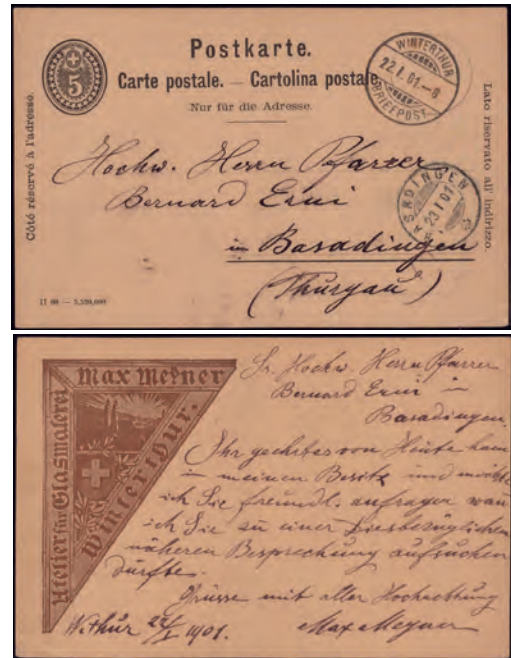 Postkarte.
Carte postale. — Cartolina postale.
Nur für die Adresse.
5
Côté réservé à l'adresse.
Lato riservato all' indirizzo.
WINTERTHUR
22.I.01.–8
BRIEFPOST
Hochw. Herrn Pfarrer
Bernard Erni
in Basadingen
(Thurgau)
BASADINGEN
23.I.01
II 00 — 5,520,000
Max Meÿner
Atelier für Glasmalerei
Winterthur.
Sr. Hochw. Herrn Pfarrer
Bernard Erni in
Basadingen.
Ihr geehrtes von Heute kam
in meinen Besitz und möchte
ich Sie freundl. anfragen wan
ich Sie zu einer diesbezüglichen
näheren Besprechung aufsuchen
dürfte.
Grüsse mit aller Hochachtung
W'thur 22/I 1901. Max Meyner